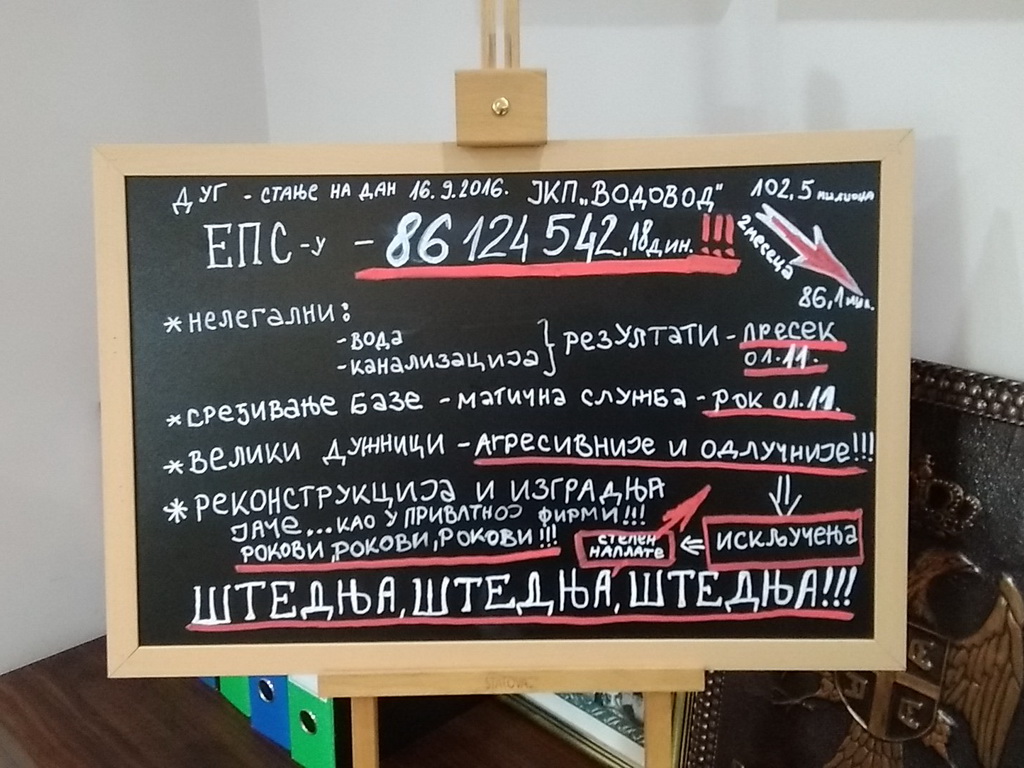 ДУГ - СТАЊЕ НА ДАН 16.9.2016. ЈКП „ВОДОВОД"
102,5 милиона
ЕПС-у - 86 124 542,18 дин. !!!
2 месеца
86,1 мил.
* НЕЛЕГАЛНИ:
- ВОДА
- КАНАЛИЗАЦИЈА
} РЕЗУЛТАТИ - ПРЕСЕК
01.11.
* СРЕЂИВАЊЕ БАЗЕ - МАТИЧНА СЛУЖБА - РОК 01.11.
* ВЕЛИКИ ДУЖНИЦИ - АГРЕСИВНИЈЕ И ОДЛУЧНИЈЕ!!!
* РЕКОНСТРУКЦИЈА И ИЗГРАДЊА
ЈАЧЕ... КАО У ПРИВАТНОЈ ФИРМИ!!!
РОКОВИ, РОКОВИ, РОКОВИ!!!
ИСКЉУЧЕЊА
СТЕПЕН
НАПЛАТЕ
ШТЕДЊА, ШТЕДЊА, ШТЕДЊА!!!